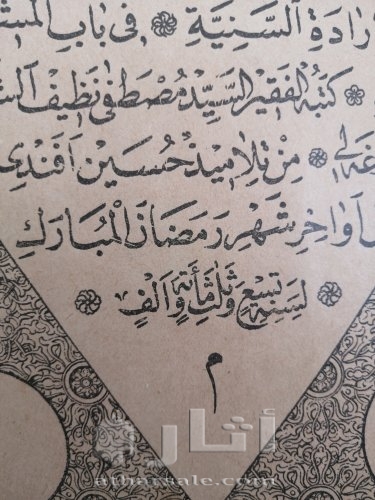 رادة السنية * في باب المش
* كتبه الفقير السيد مصطفى نظيف الش
غه لي * من تلاميذ حسين افندي
اواخر شهر رمضان المبارك
* لسنة تسع وثلثمأئة والف *
م
أثار
atharsale.com